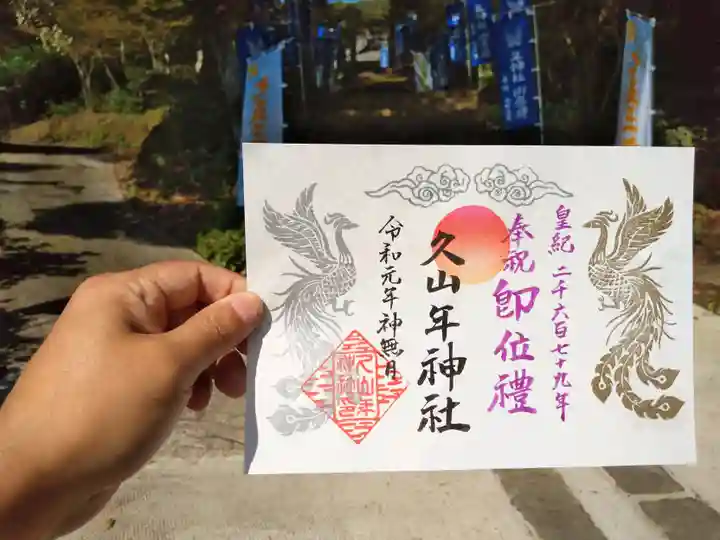 皇紀 二千六百七十九年
奉祝 即位禮
久山年神社
令和元年神無月
久山年
神社